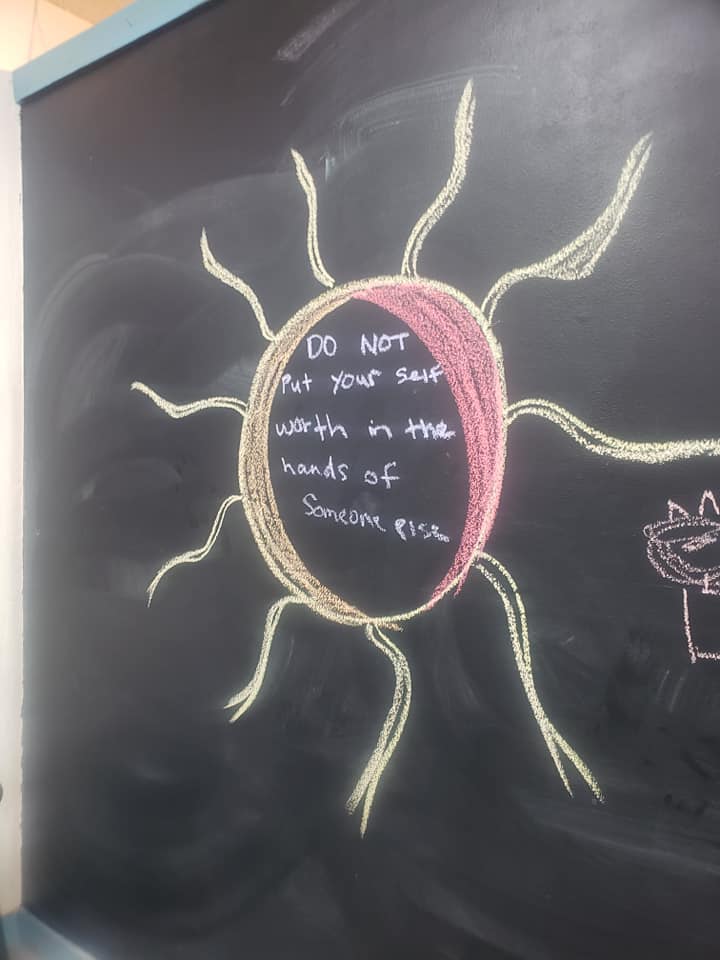 DO NOT
Put your self
worth in the
hands of
Someone else